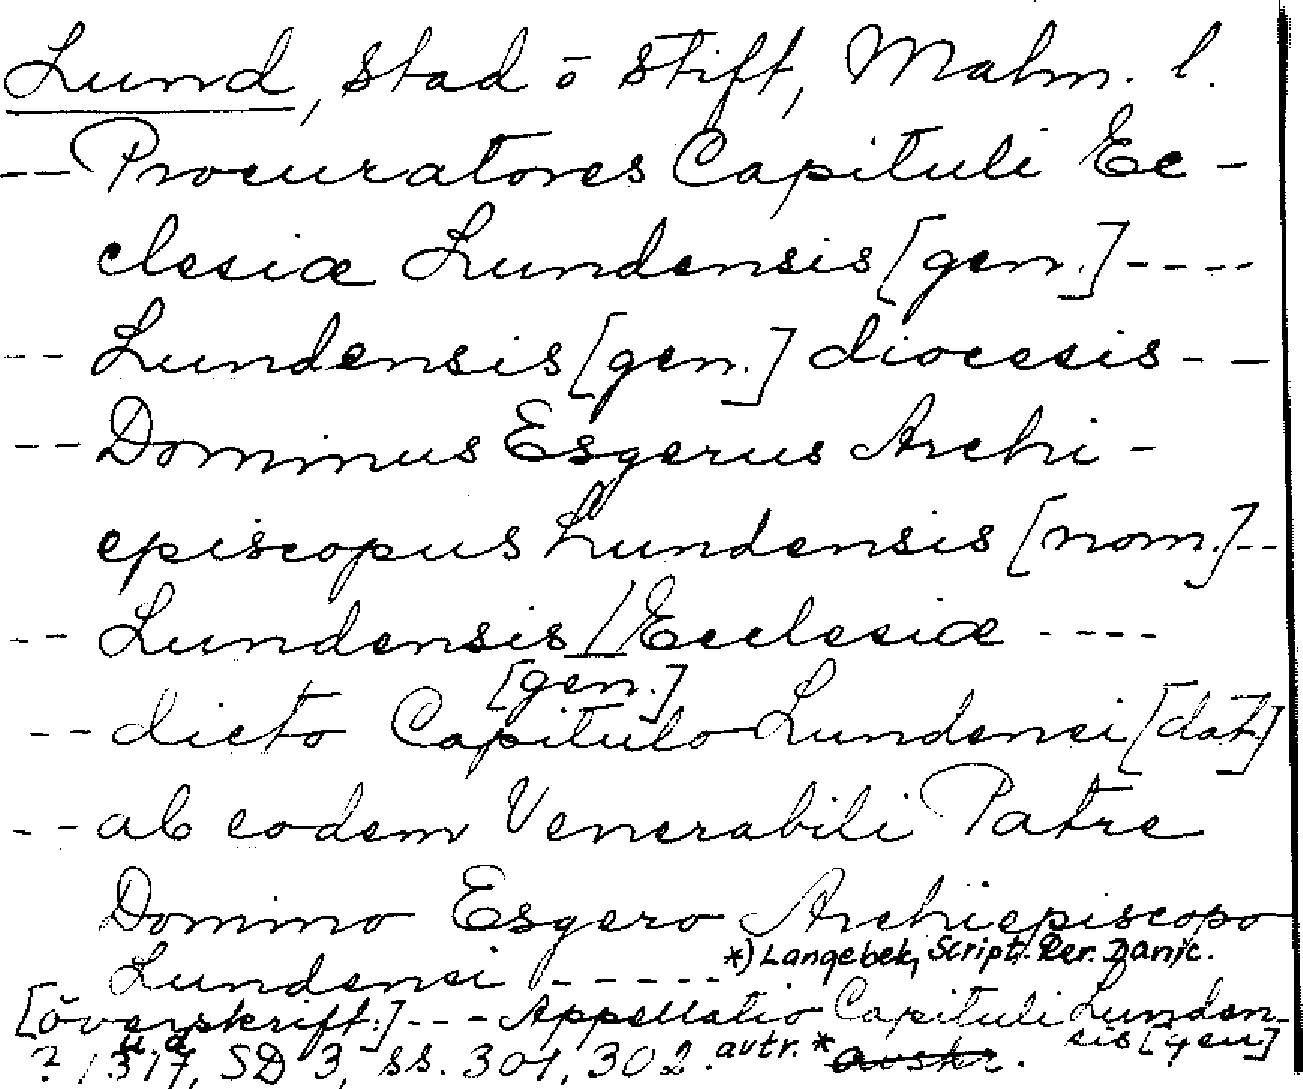 Lund, stad ō stift, Malm. l.
-- Procuratores Capituli Ec-
clesiæ Lundensis [gen.] ----
-- Lundensis [gen.] diocesis --
-- Dominus Esgerus Archi-
episcopus Lundensis [nom.] --
-- Lundensis // Ecclesiæ ----
[gen.]
-- dicto Capitulo Lundensi [dat.]
-- ab eodem Venerabili Patre
Domino Esgero Archiepiscopo
*) Langebek, Script. Rer. Danic.
Lundensi -----
[överskrift:] --- Appellatio Capituli Lunden-
sis [gen]
? 1317, SD 3, ss. 301, 302. avtr. * avskr.